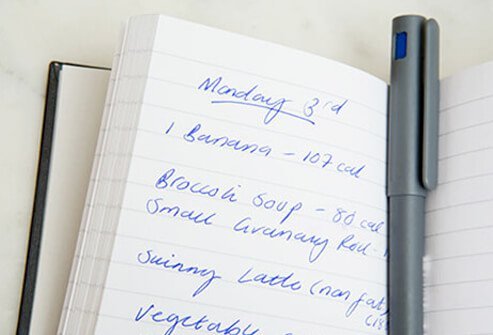 Monday 3rd
1 Banana - 107 cal
Broccoli Soup - 80 cal
Small Granary Roll -
Skinny Latte (nonfat)
Vegetable